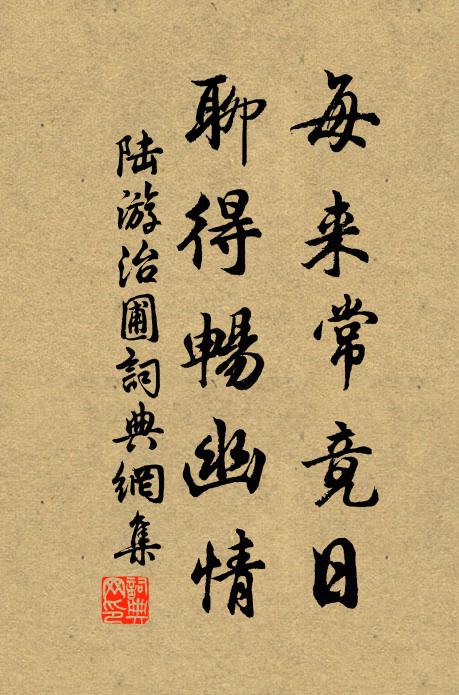 每来常竟日
聊得暢幽情
陆游治圃詞典網集
詞典网印